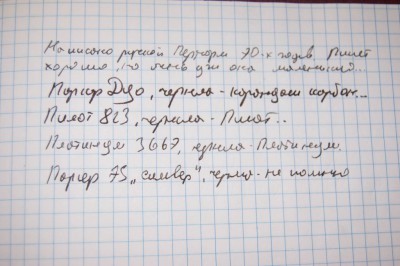 Написано ручкой Пеликан 70-х годов. Пишет
хорошо, но очень уж она маленькая...
Паркер Дуо, чернила - карандаш карбон...
Пилот 823, чернила - Пилот..
Платинум 3667, чернила - Платинум.
Паркер 75 "силвер", чернила - не помню